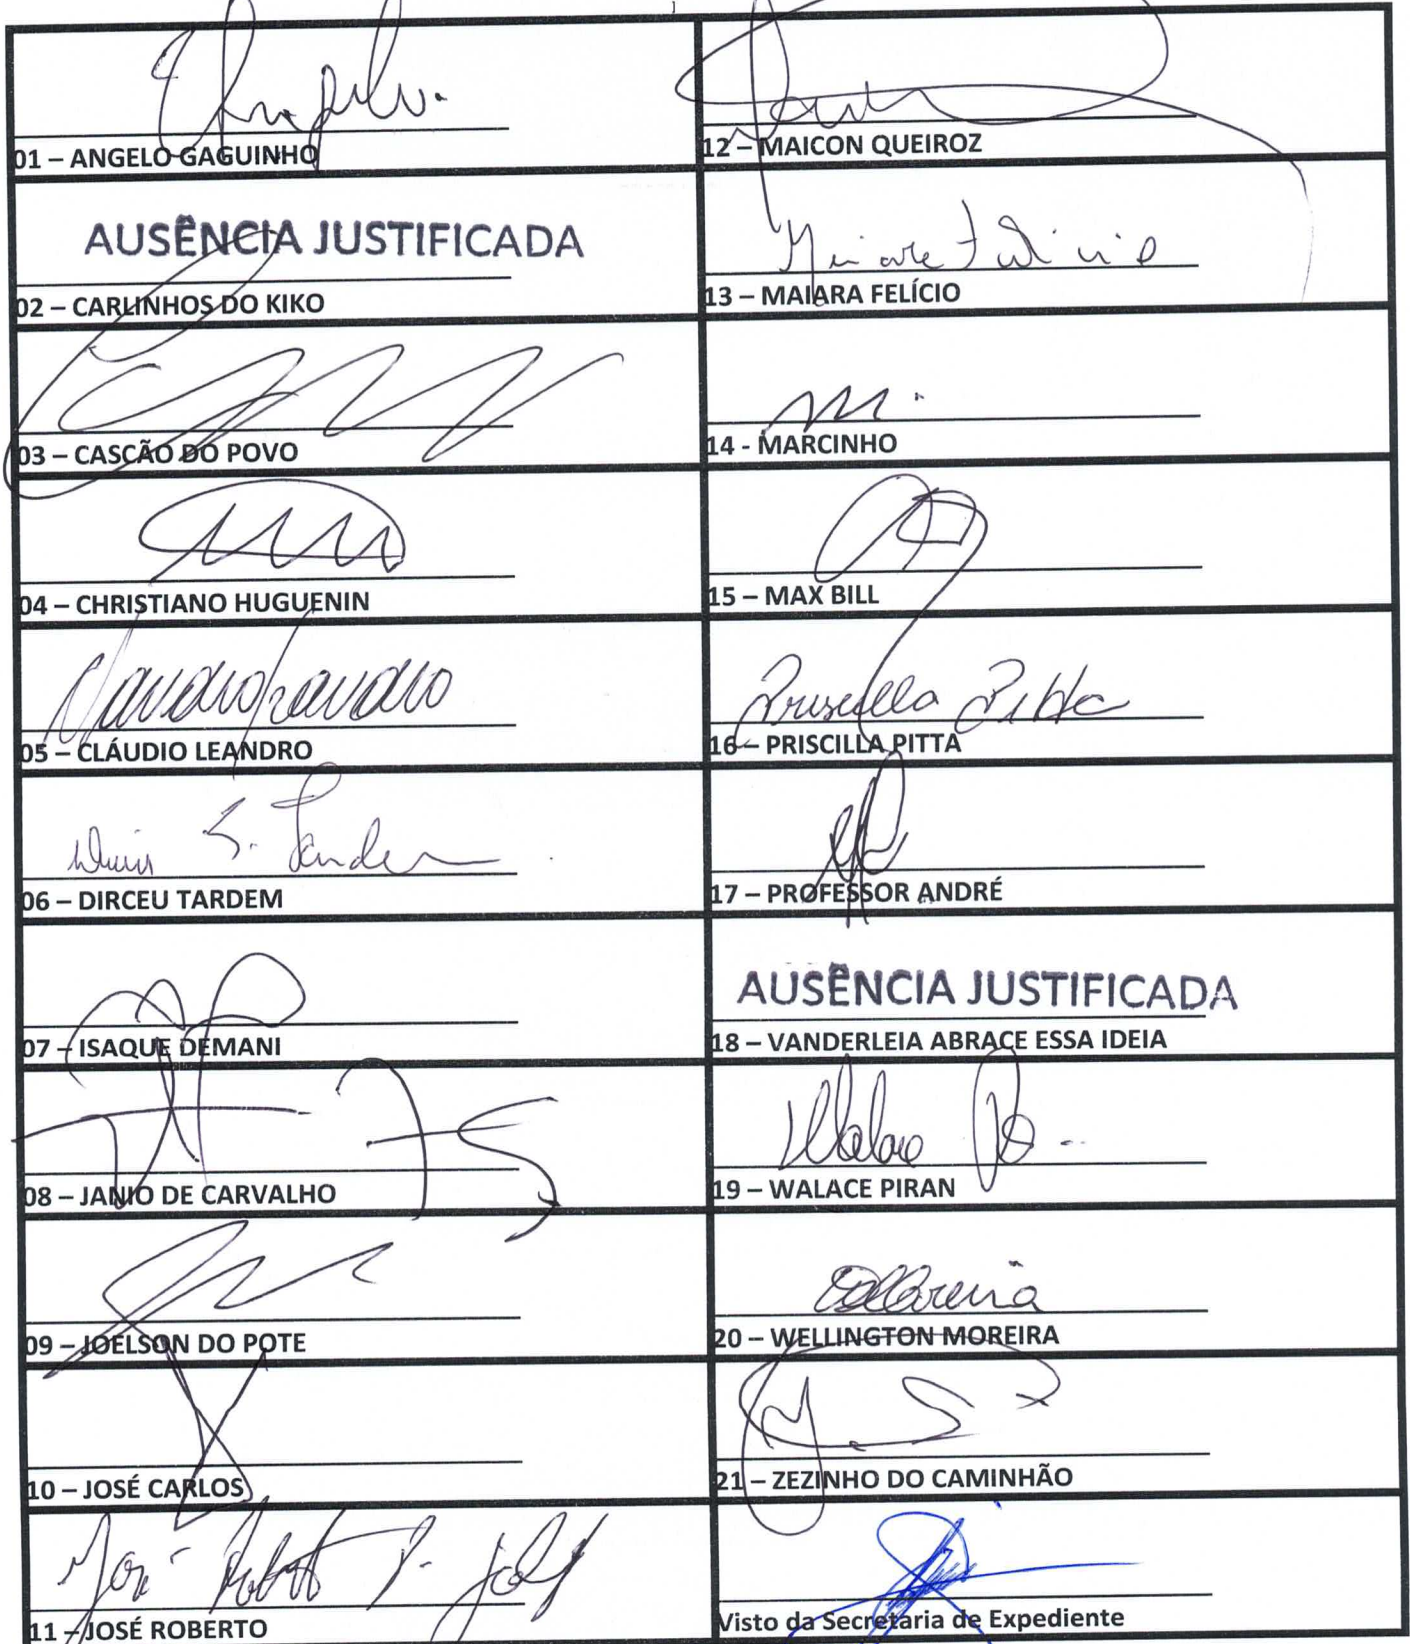 01 – ANGELO GAGUINHO
AUSÊNCIA JUSTIFICADA
02 – CARLINHOS DO KIKO
03 – CASCÃO DO POVO
04 – CHRISTIANO HUGUENIN
Claudio Leandro
05 – CLÁUDIO LEANDRO
06 – DIRCEU TARDEM
07 – ISAQUE DEMANI
08 – JANIO DE CARVALHO
09 – JOELSON DO POTE
10 – JOSÉ CARLOS
José
11 – JOSÉ ROBERTO
12 – MAICON QUEIROZ
Maiara Felicio
13 – MAIARA FELÍCIO
14 - MARCINHO
15 – MAX BILL
Priscilla Pitta
16 – PRISCILLA PITTA
17 – PROFESSOR ANDRÉ
AUSÊNCIA JUSTIFICADA
18 – VANDERLEIA ABRACE ESSA IDEIA
Walace
19 – WALACE PIRAN
20 – WELLINGTON MOREIRA
21 – ZEZINHO DO CAMINHÃO
Visto da Secretaria de Expediente